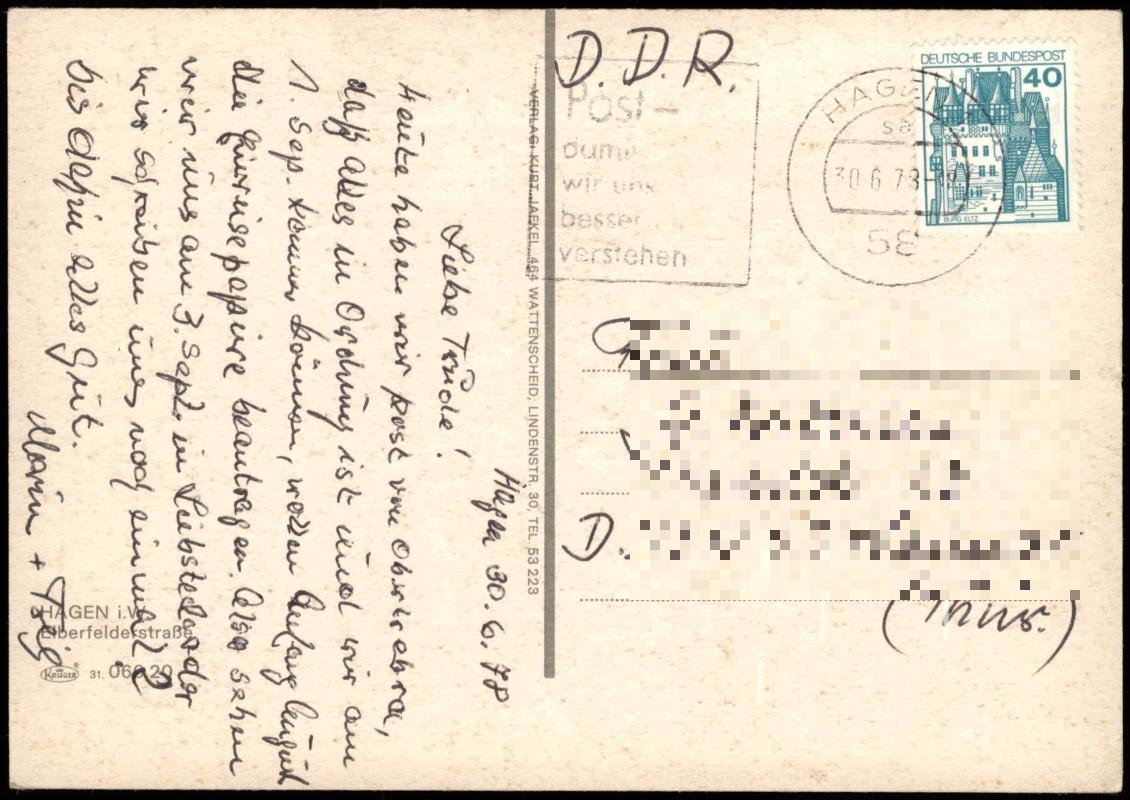 Hagen 30.6.78
Liebe Trude!
Heute haben wir Post von
daß alles in Ordnung ist und wir am
1. Sep. kommen können, wollen Anfang August
die Einreisepapire beantragen. Also sehen
wir uns am 3. Sept. in Liebstedt oder
wir schreiben uns noch einmal?
Bis dahin alles Gute.
Marin +
HAGEN i.W.
Elberfelderstraße
KRÜGER
VERLAG: KURT JAEKEL, 464 WATTENSCHEID, LINDENSTR. 30, TEL. 53223
D.D.R.
Post-
damit
wir uns
besser
verstehen
HAGEN
sa
30.6.78-18
58
DEUTSCHE BUNDESPOST
40
BURG ELTZ
D.
(Thür.)